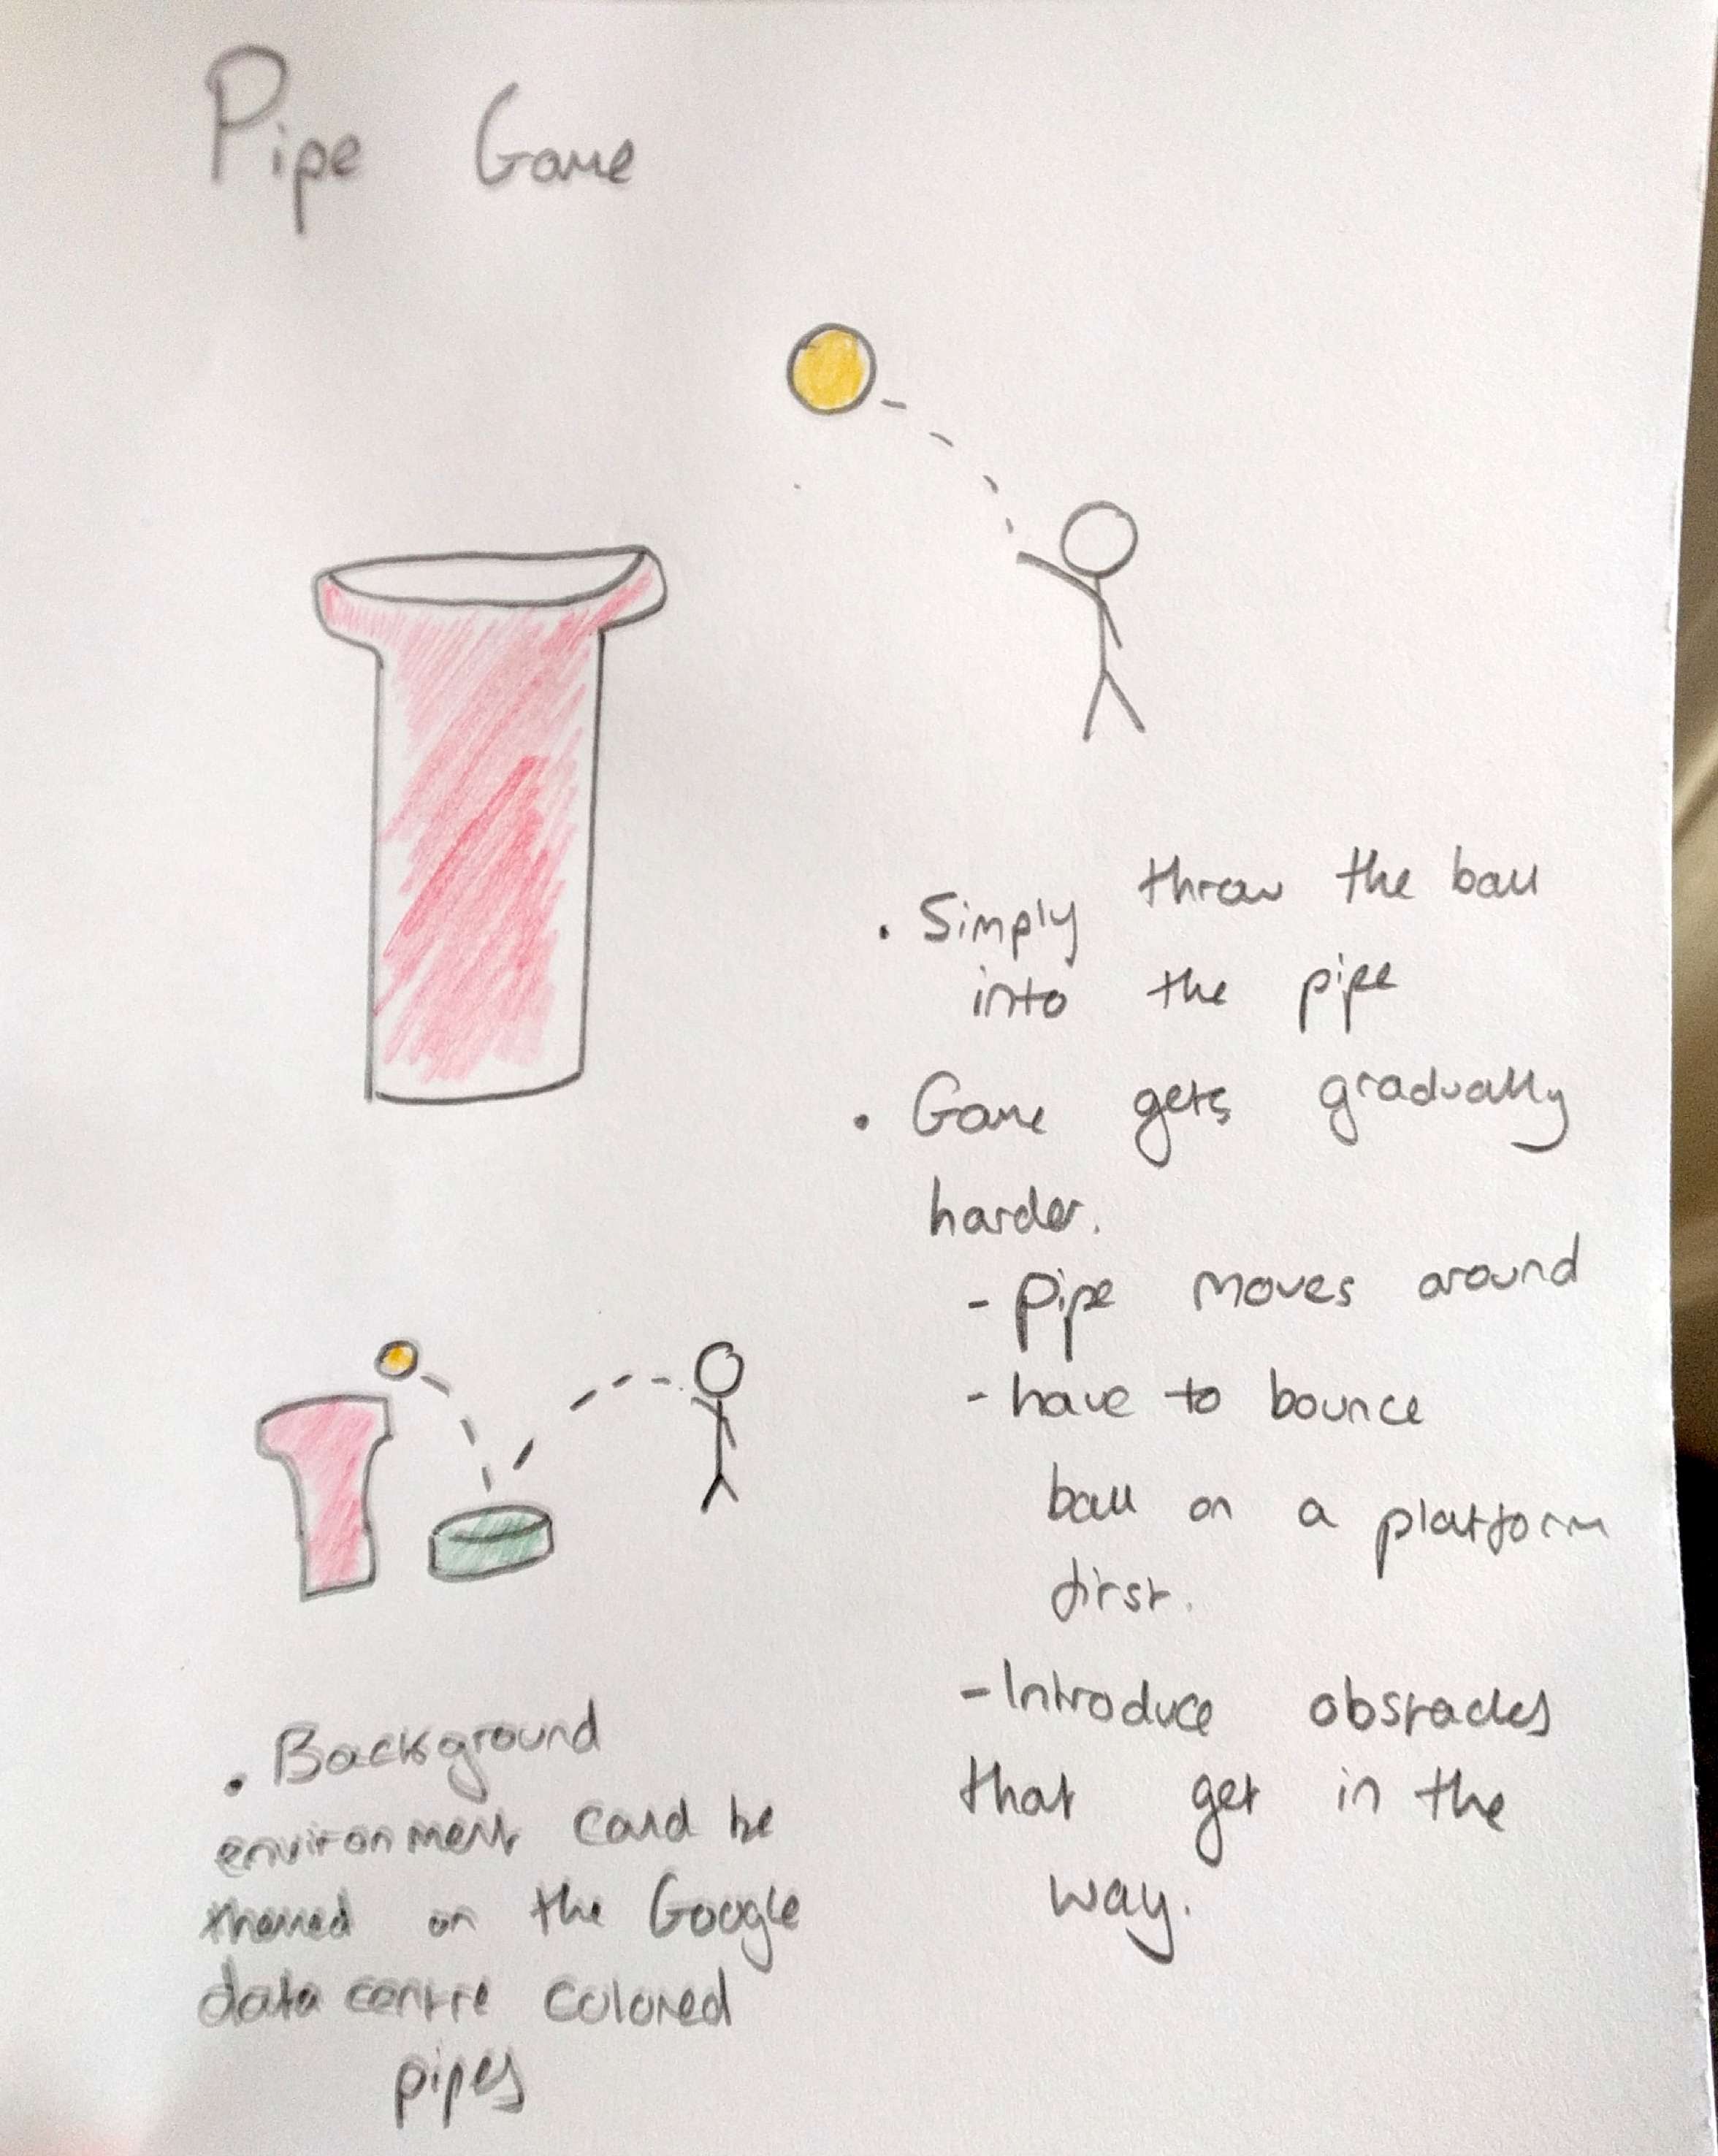 Pipe Game
• Simply throw the ball
into the pipe
• Game gets gradually
harder.
- Pipe moves around
- have to bounce
ball on a platform
first.
- Introduce obstacles
that get in the
way.
• Background
environment could be
themed on the Google
data centre colored
pipes